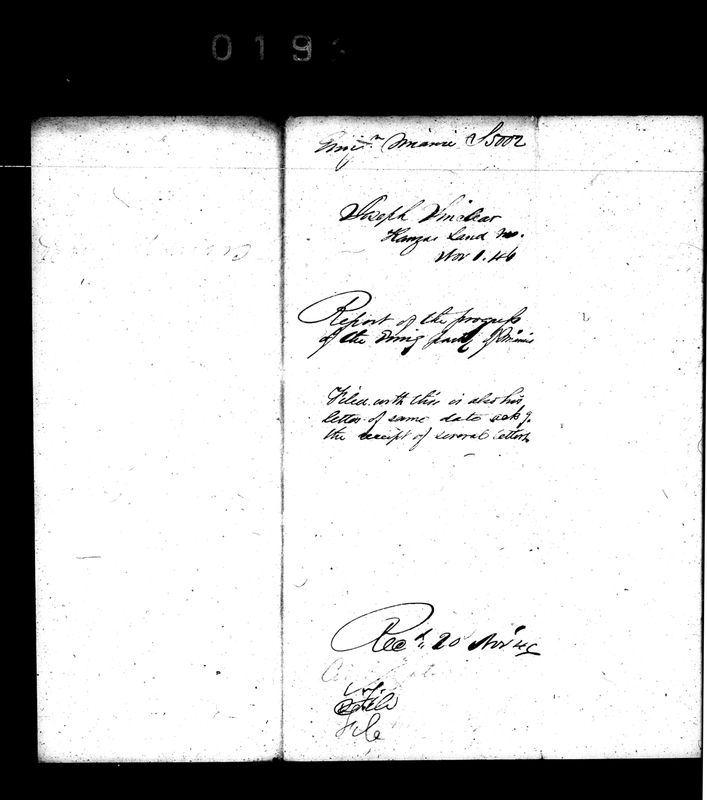 019
Emign Miamie S3002
Joseph Sinclear
Kanzas Land
Nov 1. 46
Report of the progress
of the Emig party of Miamis
Filed with this is also his
letter of same date ackg.
the receipt of several letters
Recd. 20 Nov 46
File